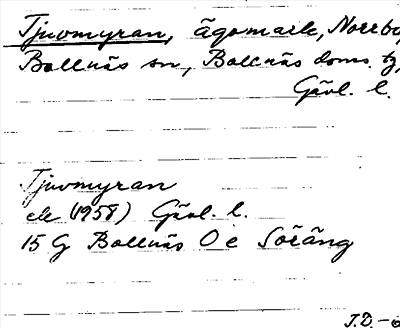 Tjuvmyran, ägomark, Norrby,
Bollnäs sn, Bollnäs doms. tg,
Gävl. l.
Tjuvmyran
ek (1958) Gävl. l.
15 G Bollnäs O e Söräng
J.D.-6